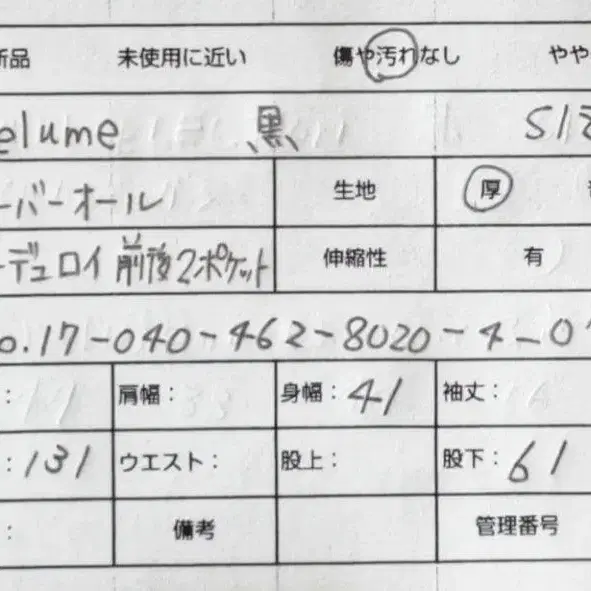 新品 未使用に近い 傷や汚れなし やや
elume 黒 SIZ
ーバーオール 生地 厚
ーデュロイ 前後2ポケット 伸縮性 有
o.17-040-462-8020-4-0
: 肩幅: 身幅:41 袖丈:
:131 ウエスト: 股上: 股下:61
: 備考 管理番号